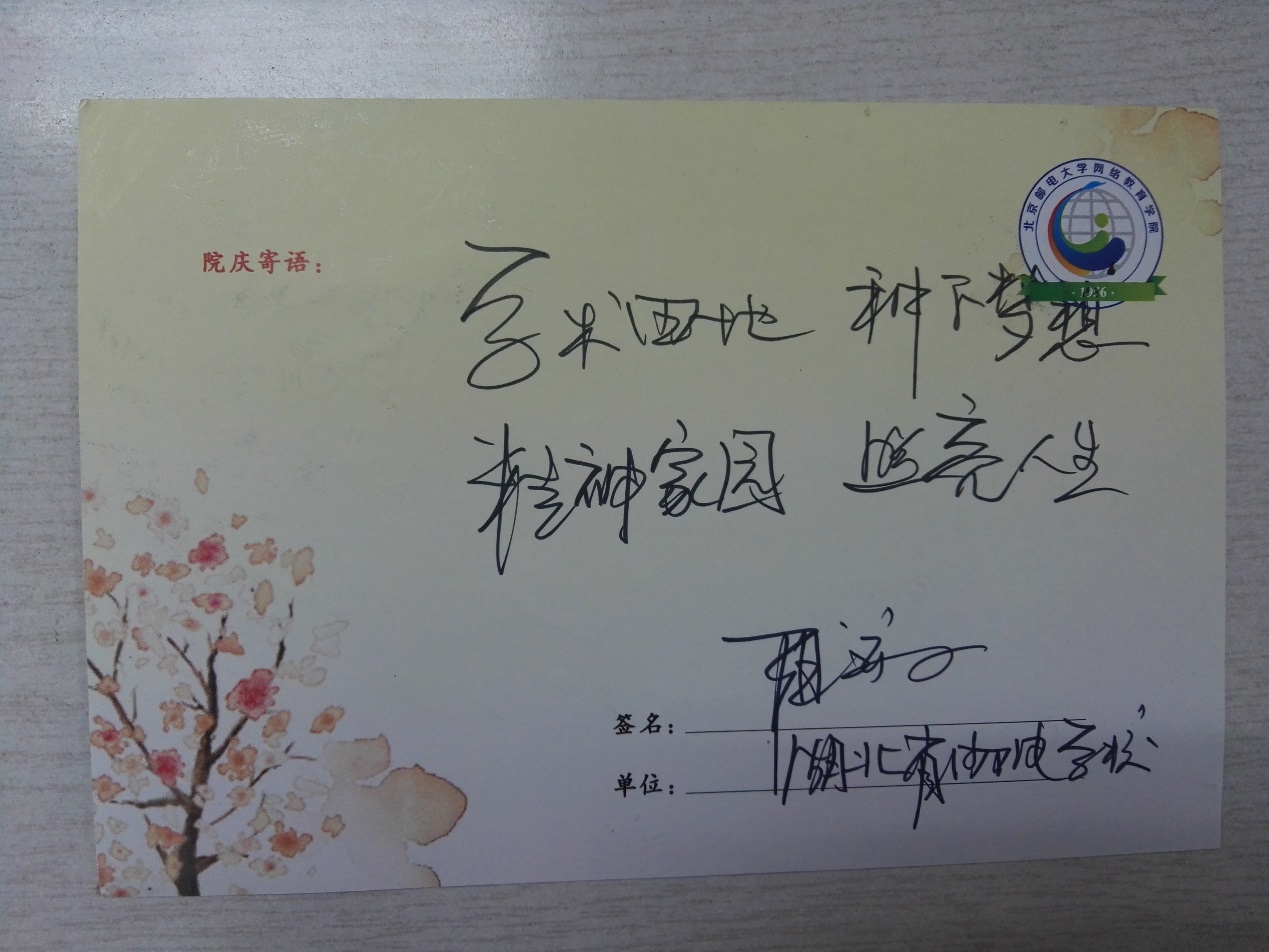 北京邮电大学网络教育学院
·1956·
院庆寄语：
学术田地 种下梦想
精神家园 照亮人生
签名：
单位：湖北省邮电学校